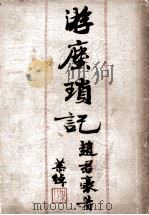 游塵瑣記
趙君豪著